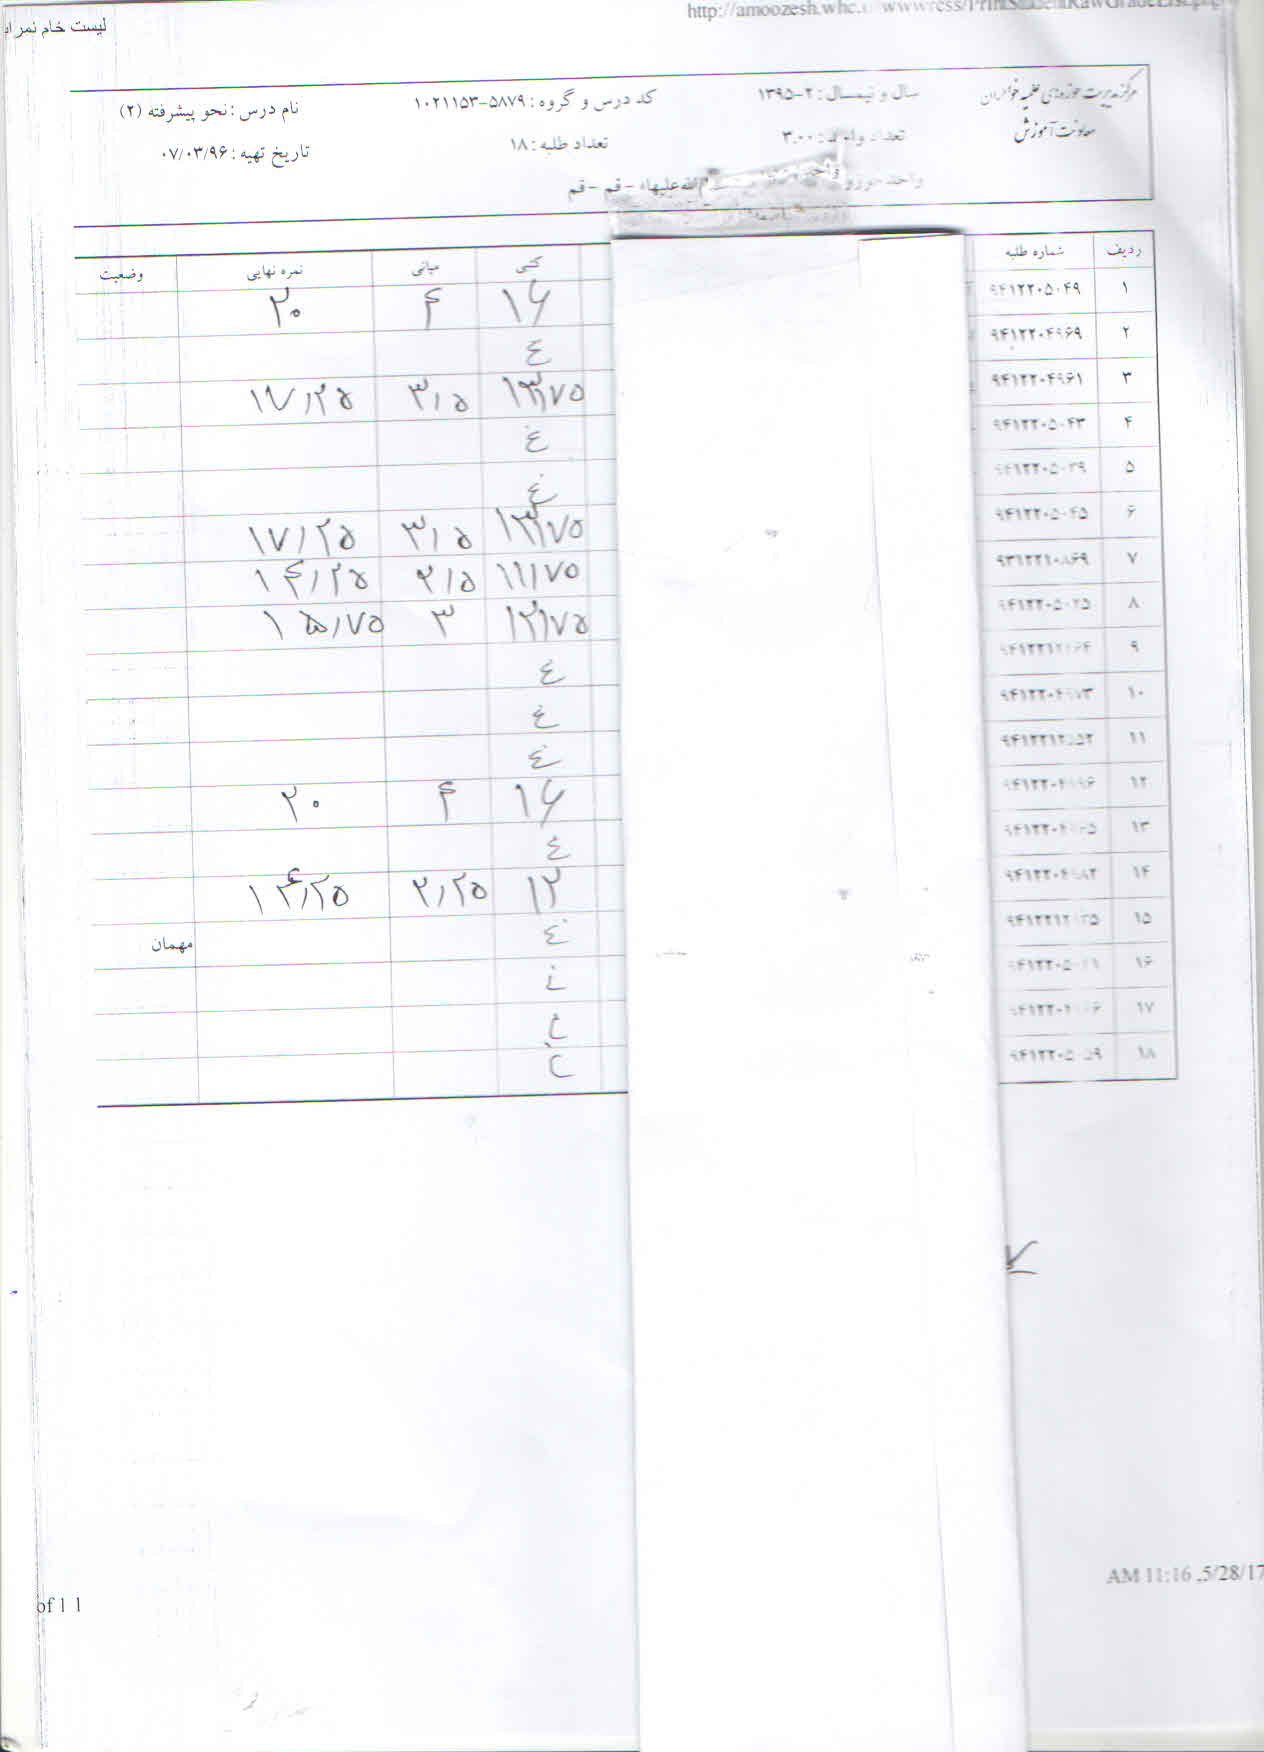 لیست خام نمرات
مرکز مدیریت حوزه‌های علمیه خواهران سال و نیمسال : ۲-۱۳۹۵ کد درس و گروه : ۵۸۷۹-۱۰۲۱۱۵۳ نام درس : نحو پیشرفته (۲)
معاونت آموزش تعداد واحد : ۳.۰۰ تعداد طلبه : ۱۸ تاریخ تهیه : ۰۷/۰۳/۹۶
واحد الله علیها» - قم - قم
ردیف شماره طلبه کتبی میانی نمره نهایی وضعیت
۱ ۹۴۱۲۲۰۵۰۴۹ ۱۶ ۴ ۲۰
۲ ۹۴۱۲۲۰۴۹۶۹ غ
۳ ۹۴۱۲۲۰۴۹۶۱ ۱۳/۷۵ ۳/۵ ۱۷/۲۵
۴ ۹۴۱۲۲۰۵۰۴۳ غ
۵ ۹۴۱۲۲۰۵۰۳۹ غ
۶ ۹۴۱۲۲۰۵۰۴۵ ۱۳/۷۵ ۳/۵ ۱۷/۲۵
۷ ۹۳۱۲۲۱۰۸۶۹ ۱۱/۷۵ ۲/۵ ۱۴/۲۵
۸ ۹۴۱۲۲۰۵۰۲۵ ۱۲/۷۵ ۳ ۱۵/۷۵
۹ غ
۱۰ غ
۱۱ غ
۱۲ ۱۶ ۴ ۲۰
۱۳ غ
۱۴ ۱۲ ۲/۲۵ ۱۴/۲۵
۱۵ غ مهمان
۱۶ غ
۱۷ غ
۱۸ غ
AM 11:16 ,5/28/17
of 1 1